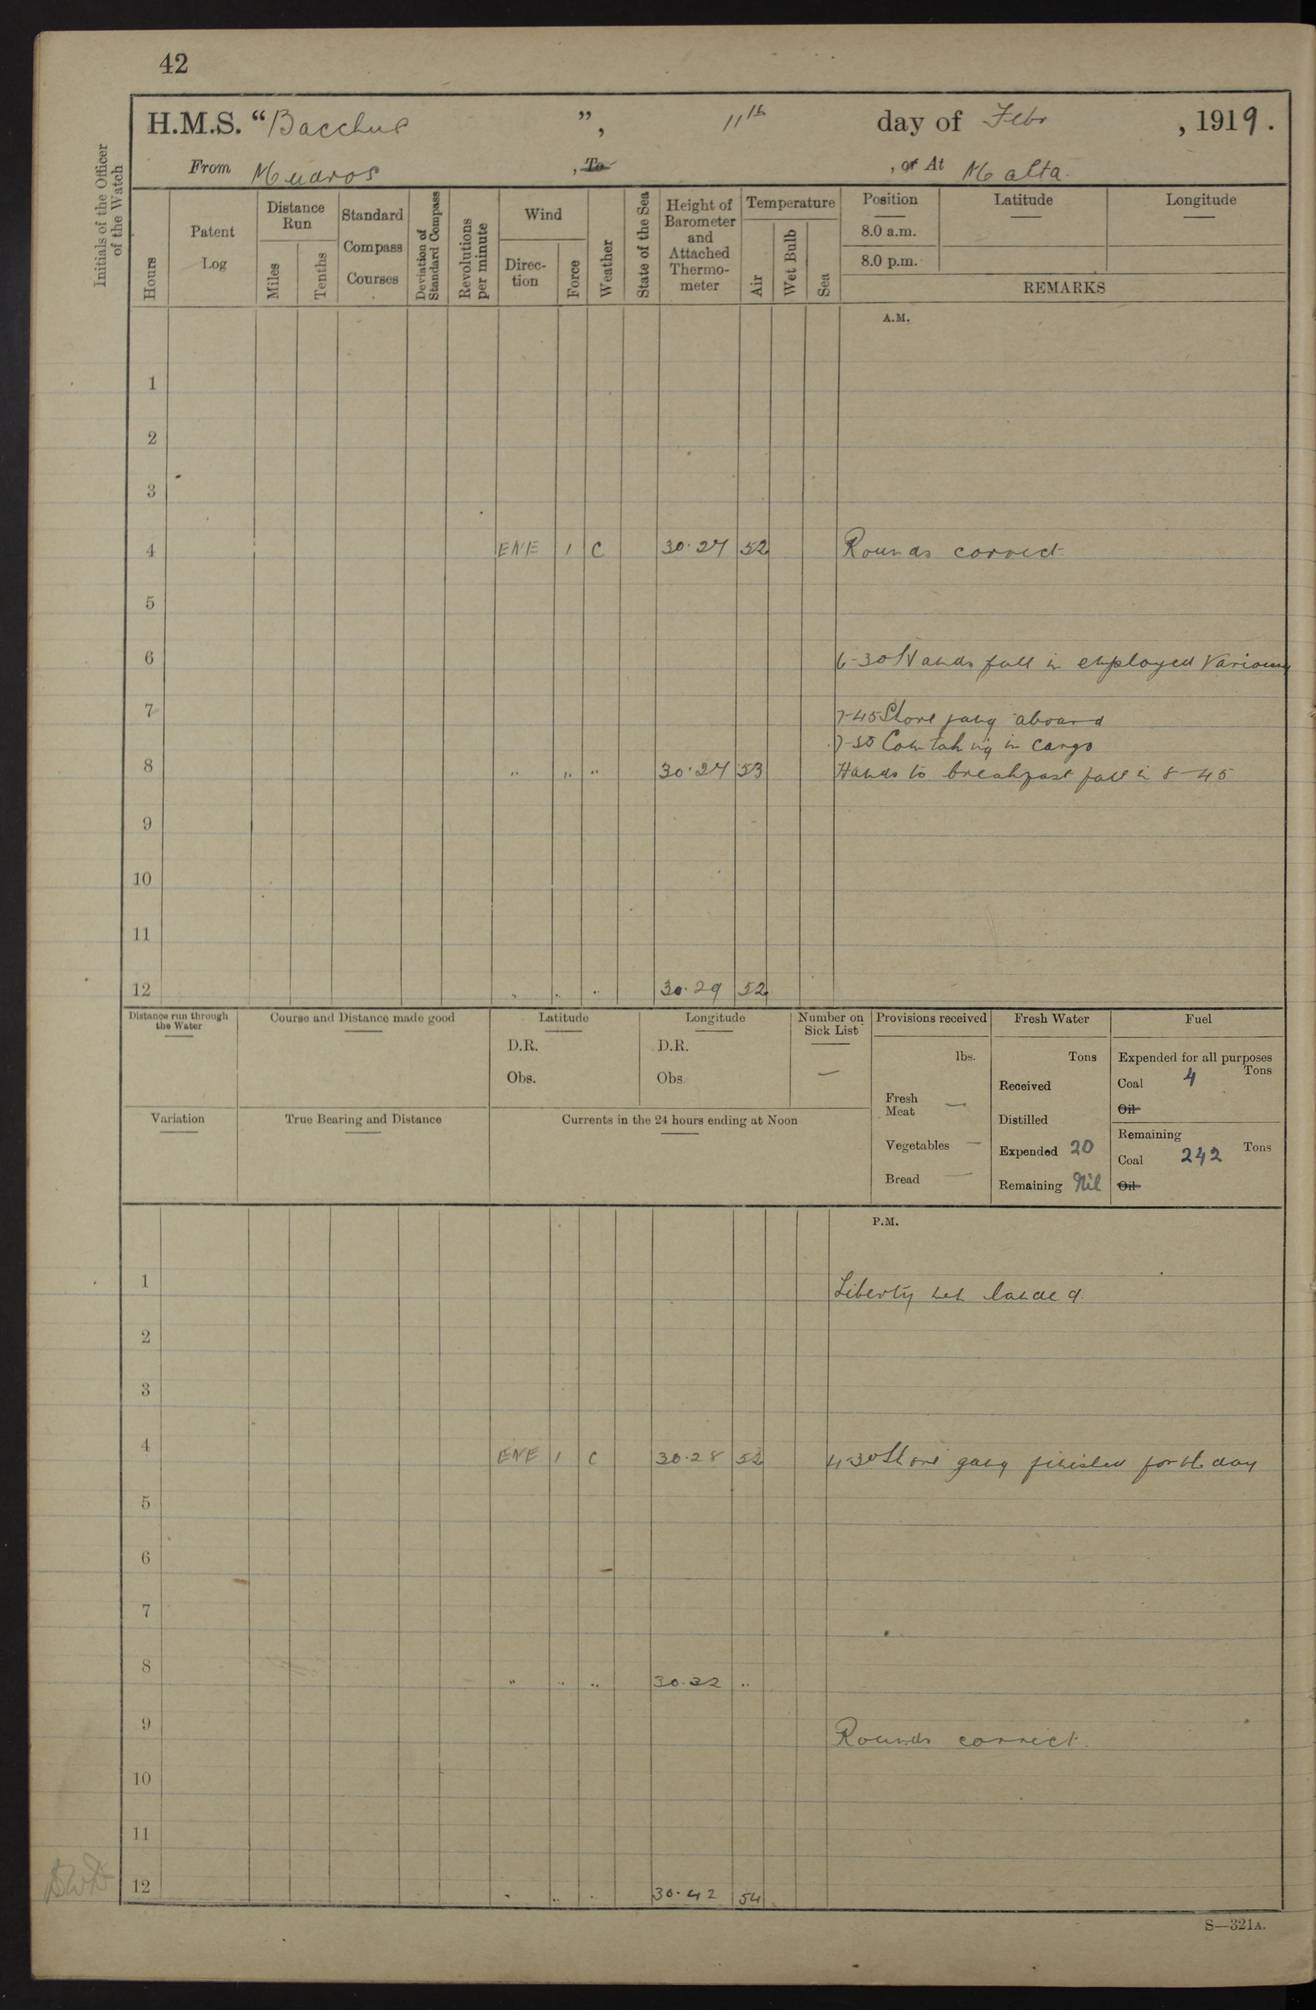 42
H.M.S. "Bacchus", 11th day of Febr, 1919.
From Mudros, To, or At Malta.
Initials of the Officer of the Watch
Hours
Patent Log
Distance Run
Miles
Tenths
Standard Compass Courses
Deviation of Standard Compass
Revolutions per minute
Wind
Direction
Force
Weather
State of the Sea
Height of Barometer and Attached Thermometer
Temperature
Air
Wet Bulb
Sea
Position
8.0 a.m.
8.0 p.m.
Latitude
Longitude
REMARKS
A.M.
1
2
3
4 ENE 1 C 30.27 52 Rounds correct
5
6 6-30 Hands fall in employed Various
7 7-45 Shore gang aboard
7-50 Com taking in cargo
8 " " " 30.27 53 Hands to breakfast fall in 8-45
9
10
11
12 " " " 30.29 52
Distance run through the Water
Course and Distance made good
Latitude
D.R.
Obs.
Longitude
D.R.
Obs.
Number on Sick List
—
Provisions received
lbs.
Fresh Meat —
Vegetables —
Bread —
Fresh Water
Tons
Received
Distilled
Expended 20
Remaining Nil
Fuel
Expended for all purposes
Coal 4 Tons
Oil
Remaining
Coal 242 Tons
Oil
Variation
True Bearing and Distance
Currents in the 24 hours ending at Noon
P.M.
1 Liberty men landed
2
3
4 ENE 1 C 30.28 52 4-30 Shore gang finished for the day
5
6
7
8 " " " 30.32 "
9 Rounds correct.
10
11
12 " " " 30.42 54
S—321A.